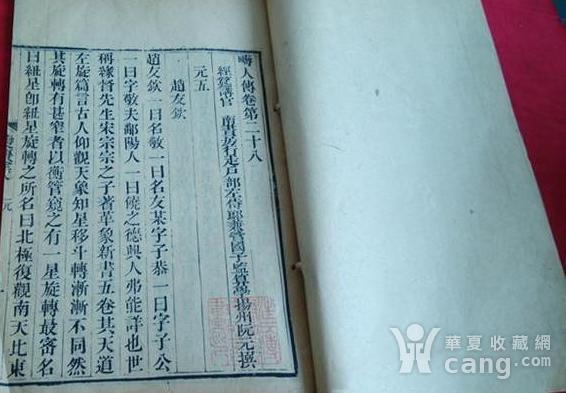 疇人傳卷第二十八
經筵講官 南書房行走戶部左侍郎兼管國子監算學揚州阮元撰
元五
趙友欽
趙友欽一曰名敬一曰名友某字子恭一曰字子公
一曰字敬夫鄱陽人一曰饒之德興人弗能詳也世
稱緣督先生宋宗室之子著革象新書五卷其天道
左旋篇言古人仰觀天象知星移斗轉漸漸不同然
其旋轉有甚窄者以衡管窺之有一星旋轉最密名
曰紐星卽紐星旋轉之所名曰北極復觀南天北東
元
華夏收藏網
cang.com